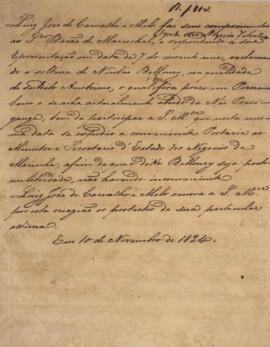 Luiz Joze de Carvalho e Mello faz seus comprimentos
ao Snr Barão de Mareschal, e respondendo a sua
representação em data de 7 do corrente mez, reclaman
do a soltura de Nicoláo Bellomy, na qualidade
de subdito Austriaco, o qual fôra prezo em Pernam
buco e se acha actualmente a bordo da Náo
tem de participar a S. Mce que nesta mes
ma data se expedio a conveniente Portaria ao
Ministro e Secretario d'Estado dos Negocios da
Marinha, afim de que o dito Bellomy seja posto
em liberdade, não havendo inconveniente.
Luiz Joze de Carvalho e Mello renova a S. Mce
por esta occazião os protestos de sua particular
estima.
Em 10 de Novembro de 1824.